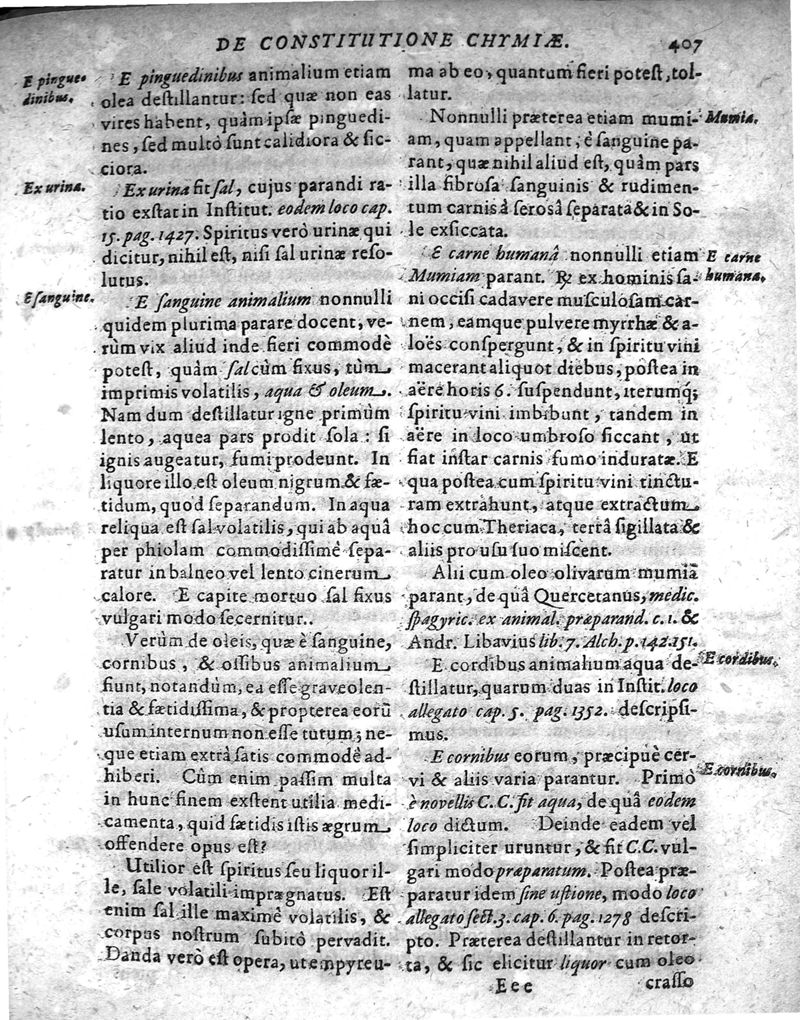 DE CONSTITUTIONE CHYMIÆ. 407
E pingue-
dinibus.
E pinguedinibus animalium etiam
olea destillantur: sed quæ non eas
vires habent, quàm ipsæ pinguedi-
nes, sed multò sunt calidiora & sic-
ciora.
Ex urina.
Ex urina fit sal, cujus parandi ra-
tio exstat in Institut. eodem loco cap.
15. pag. 1427. Spiritus verò urinæ qui
dicitur, nihil est, nisi sal urinæ reso-
lutus.
E sanguine.
E sanguine animalium nonnulli
quidem plurima parare docent, ve-
rùm vix aliud inde fieri commodè
potest, quàm sal cùm fixus, tùm
imprimis volatilis, aqua & oleum.
Nam dum destillatur igne primùm
lento, aquea pars prodit sola: si
ignis augeatur, fumi prodeunt. In
liquore illo est oleum nigrum & fæ-
tidum, quod separandum. In aqua
reliqua est sal volatilis, qui ab aquâ
per phiolam commodissimê sepa-
ratur in balneo vel lento cinerum
calore. E capite mortuo sal fixus
vulgari modo secernitur..
Verùm de oleis, quæ è sanguine,
cornibus, & ossibus animalium
fiunt, notandùm, ea esse graveolen-
tia & fætidissima, & propterea eorū
usum internum non esse tutum; ne-
que etiam extrà satis commodê ad-
hiberi. Cùm enim passim multa
in hunc finem exstent utilia medi-
camenta, quid fætidis istis ægrum
offendere opus est?
Utilior est spiritus seu liquor il-
le, sale volatili imprægnatus. Est
enim sal ille maximê volatilis, &
corpus nostrum subitò pervadit.
Danda verò est opera, ut empyreu-
ma ab eo, quantum fieri potest, tol-
latur.
Nonnulli præterea etiam mumi-
am, quam appellant, è sanguine pa-
rant, quæ nihil aliud est, quàm pars
illa fibrosa sanguinis & rudimen-
tum carnis à serosâ separata & in So-
le exsiccata.
Mumia.
E carne humanâ nonnulli etiam
Mumiam parant. ℞ ex hominis sa-
ni occisi cadavere musculosam car-
nem, eamque pulvere myrrhæ & a-
loës conspergunt, & in spiritu vini
macerant aliquot diebus, postea in
aëre horis 6. suspendunt, iterumq;
spiritu vini imbibunt, tandem in
aëre in loco umbroso siccant, ut
fiat instar carnis fumo induratæ. E
qua postea cum spiritu vini tinctu-
ram extrahunt, atque extractum
hoc cum Theriaca, terrâ sigillata &
aliis pro usu suo miscent.
E carne
humana.
Alii cum oleo olivarum mumiā
parant, de quâ Quercetanus, medic.
spagyric. ex animal. præparand. c. 1. &
Andr. Libavius lib. 7. Alch. p. 142. 151.
E cordibus animalium aqua de-
stillatur, quarum duas in Instit. loco
allegato cap. 5. pag. 1352. descripsi-
mus.
E cordibus.
E cornibus eorum, præcipuè cer-
vi & aliis varia parantur. Primò
è novellis C. C. fit aqua, de quâ eodem
loco dictum. Deinde eadem vel
simpliciter uruntur, & fit C. C. vul-
gari modo præparatum. Postea præ-
paratur idem sine ustione, modo loco
allegato sect. 3. cap. 6. pag. 1278 descri-
pto. Præterea destillantur in retor-
ta, & sic elicitur liquor cum oleo
E cornibus.
Eee crasso